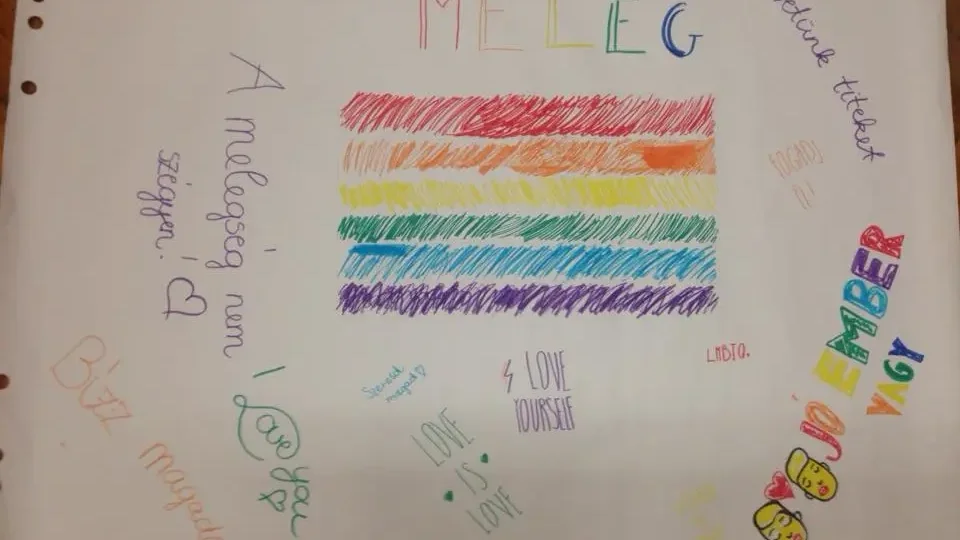 MELEG
titeket
A melegség nem
szégyen! ♡
FOGADJ
EL
JÓ EMBER
VAGY
LMBTQ.
Szeresd
magad ♡
LOVE
YOURSELF
I
Love you
LOVE
IS
LOVE
Bízz magad